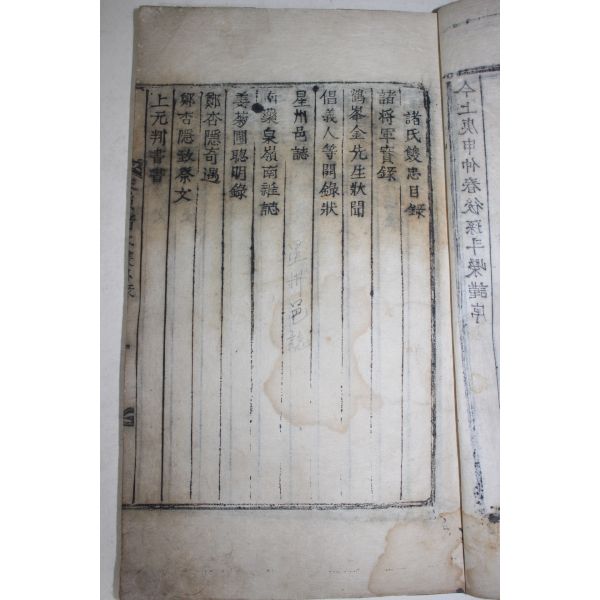 今上庚申仲春後孫斗榮謹序
諸氏雙忠目錄
諸將軍實錄
鶴峯金先生狀聞
倡義人等開錄狀
星州邑誌
南藥泉嶺南誰誌
姜菊圃聰明錄
鄭杏隱奇遇
鄭杏隱致祭文
上元判書書
星州邑誌